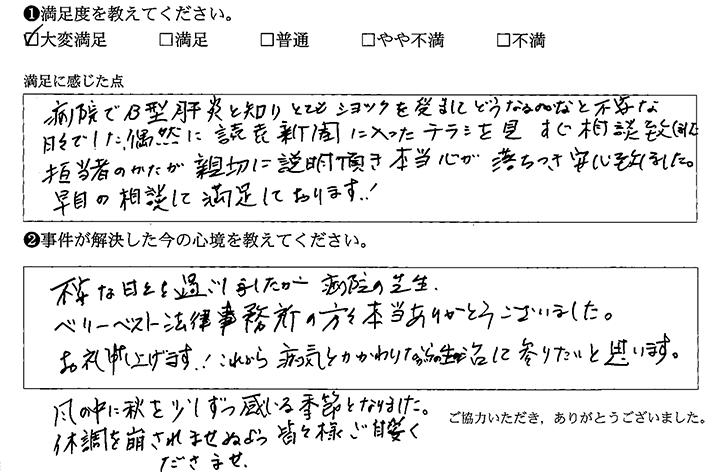 ❶満足度を教えてください。
☑大変満足 □満足 □普通 □やや不満 □不満
満足に感じた点
病院でB型肝炎と知りとてもショックを受ましてどうなるのかなと不安な
日々でした。偶然に読売新聞に入ったチラシを見 すぐ相談致しました
担当者のかたが親切に説明頂き本当心が落ちつき安心致しました。
早目の相談して満足しております。!
❷事件が解決した今の心境を教えてください。
不安な日々を過ごしましたが病院の先生、
ベリーベスト法律事務所の方々本当ありがとうございました。
お礼申上げます。!これから病気とかかわりながらの生活して参りたいと思います。
風の中に秋を少しずつ感じる季節となりました。
体調を崩されませぬよう皆々様ご自愛く
ださませ、
ご協力いただき，ありがとうございました。